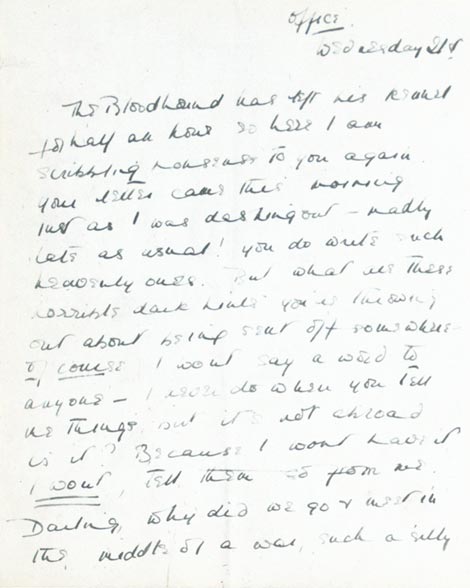 Office.
Wednesday 21st
The Bloodhound has left his kennel
for half an hour so here I am
scribbling nonsense to you again.
your letter came this morning
just as I was dashing out – madly
late as usual! you do write such
heavenly ones. But what are these
horrible dark hints you're throwing
out about being sent off somewhere –
of course I won't say a word to
anyone – I never do when you tell
me things, but it's not abroad
is it? Because I won't have it
I won't, tell them so from me.
Darling, why did we go & meet in
the middle of a war, such a silly